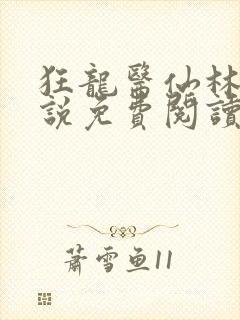 狂龍醫仙林
說免費閱讀
蕭雪魚11